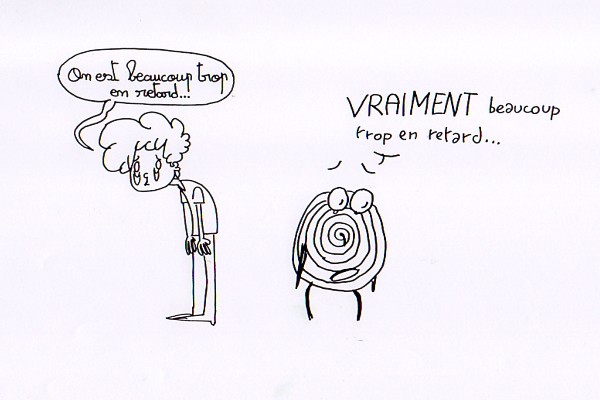 On est beaucoup trop
en retard...
VRAIMENT beaucoup
trop en retard...